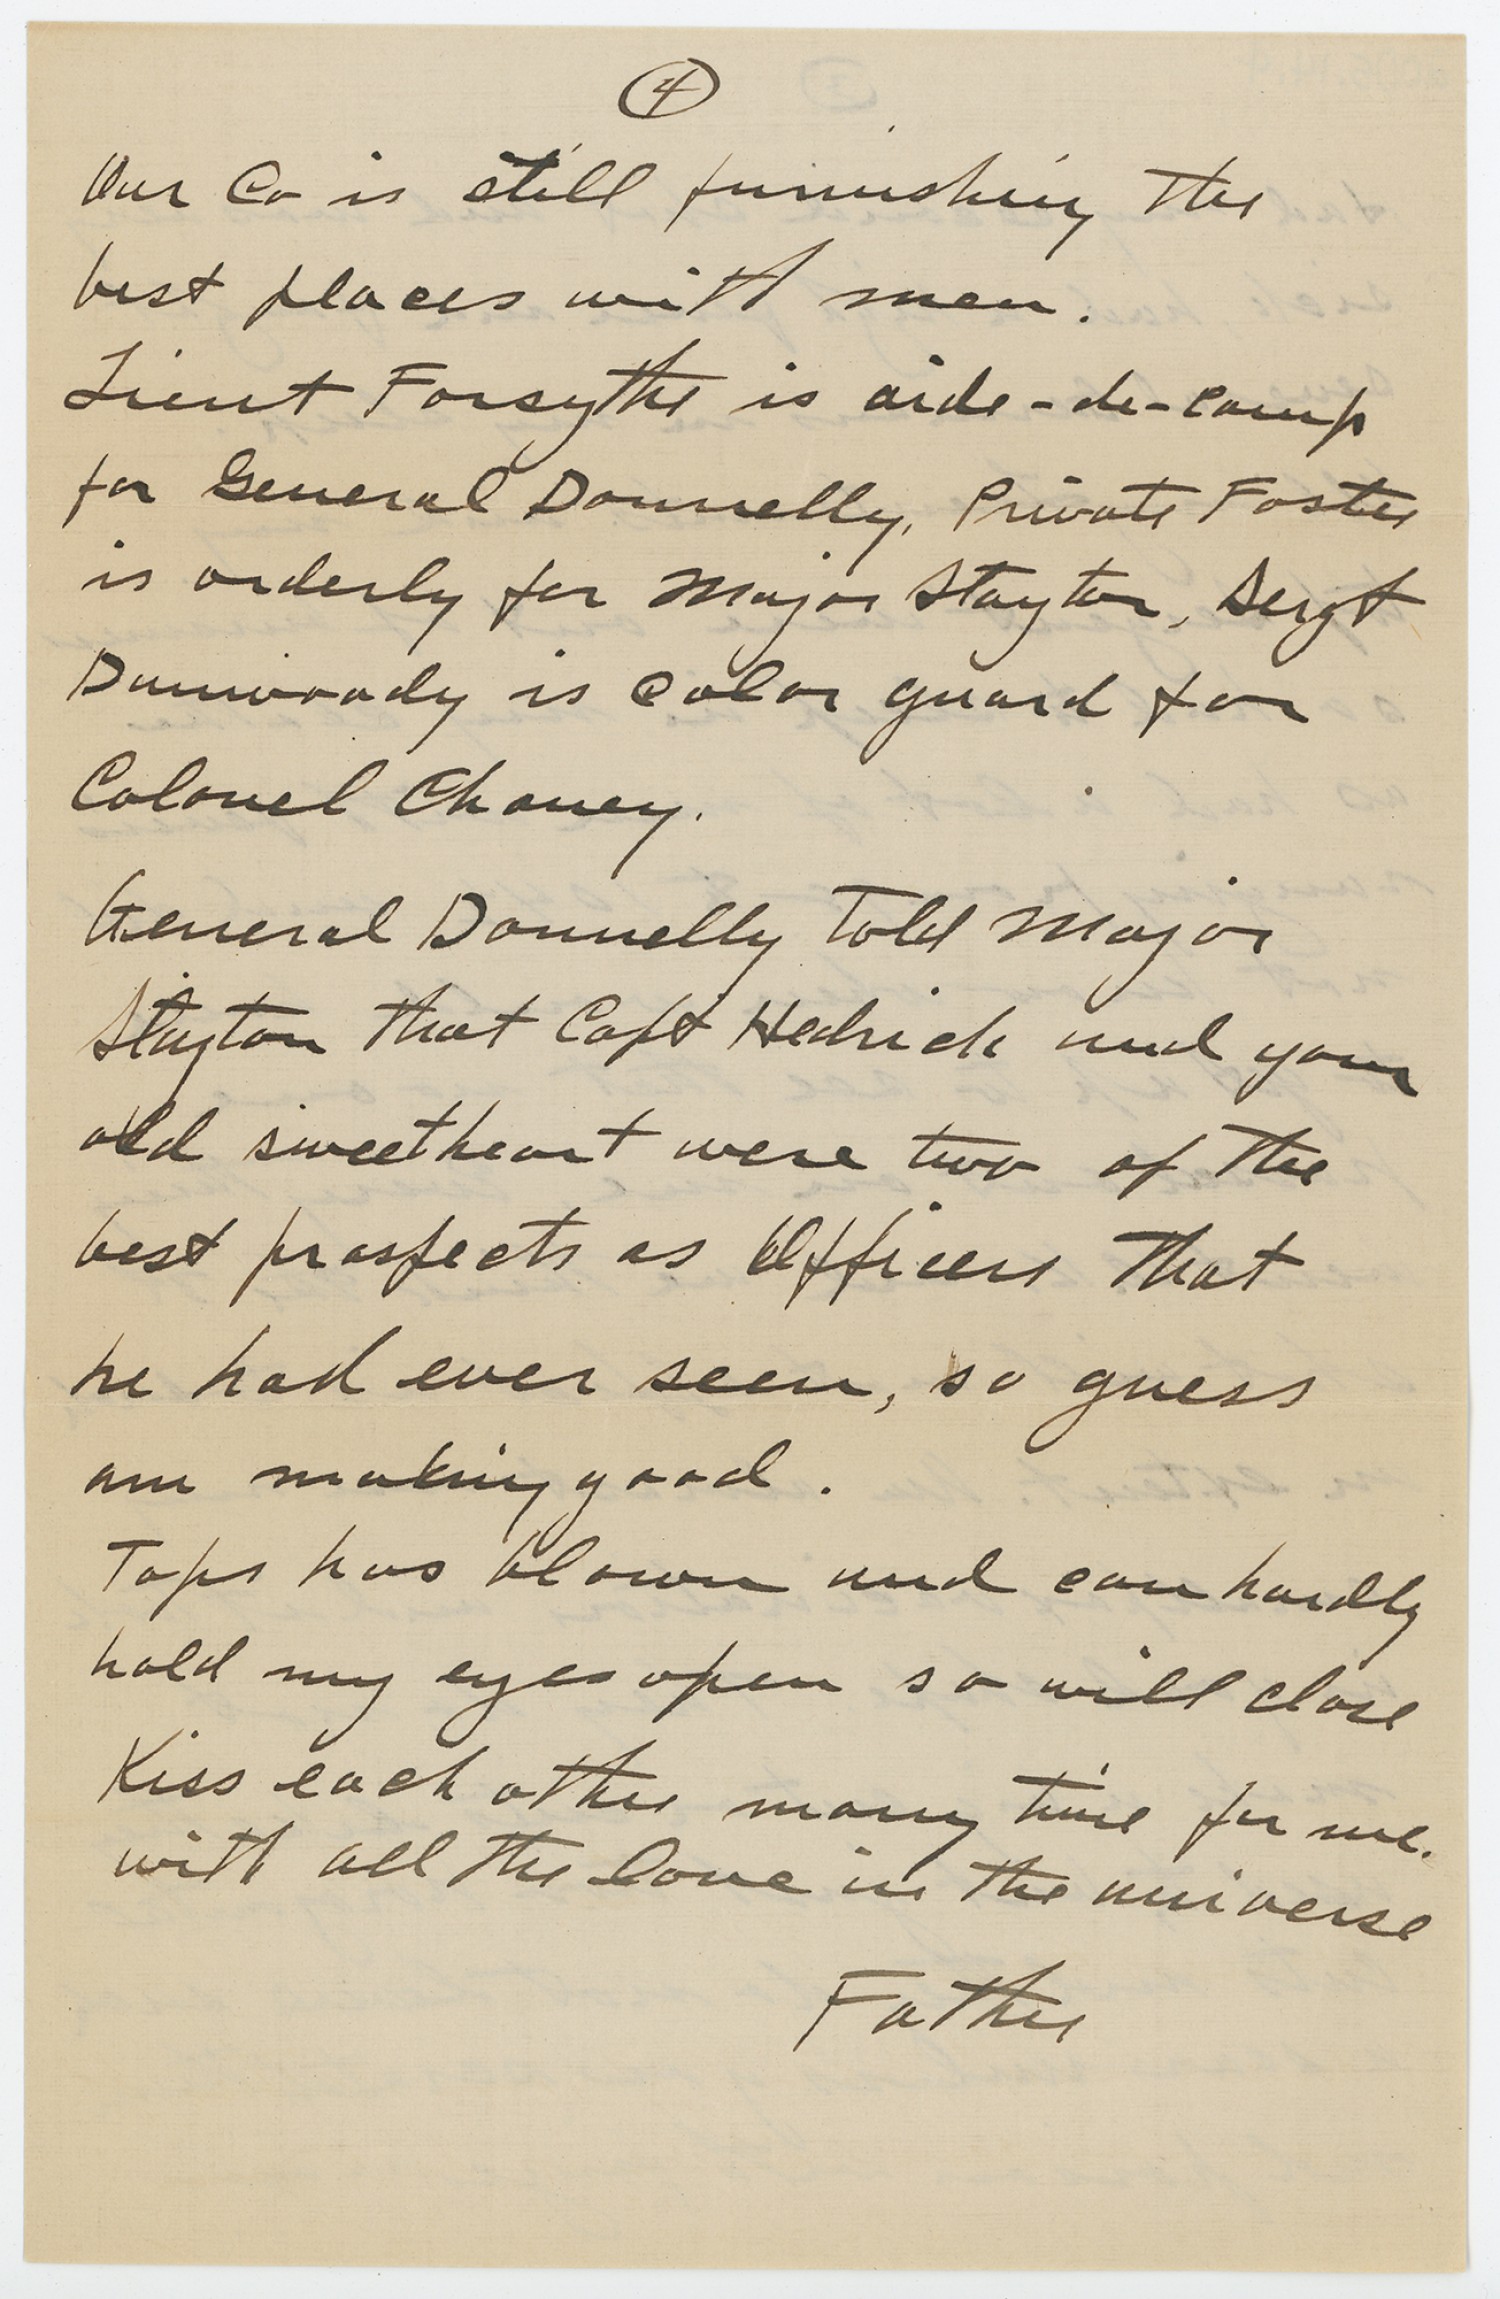 4
Our Co is still furnishing the
best places with men.
Lieut Forsythe is aide-de-camp
for General Donnelly, Private Foster
is orderly for Major Stayton, Sergt
Dunwoody is color guard for
Colonel Chaney.
General Donnelly told Major
Stayton that Capt Hedrick and your
old sweetheart were two of the
best prospects as Officers that
he had ever seen, so guess
am making good.
Taps has blown and can hardly
hold my eyes open so will close
Kiss each other many time for me.
with all the love in the universe
Father